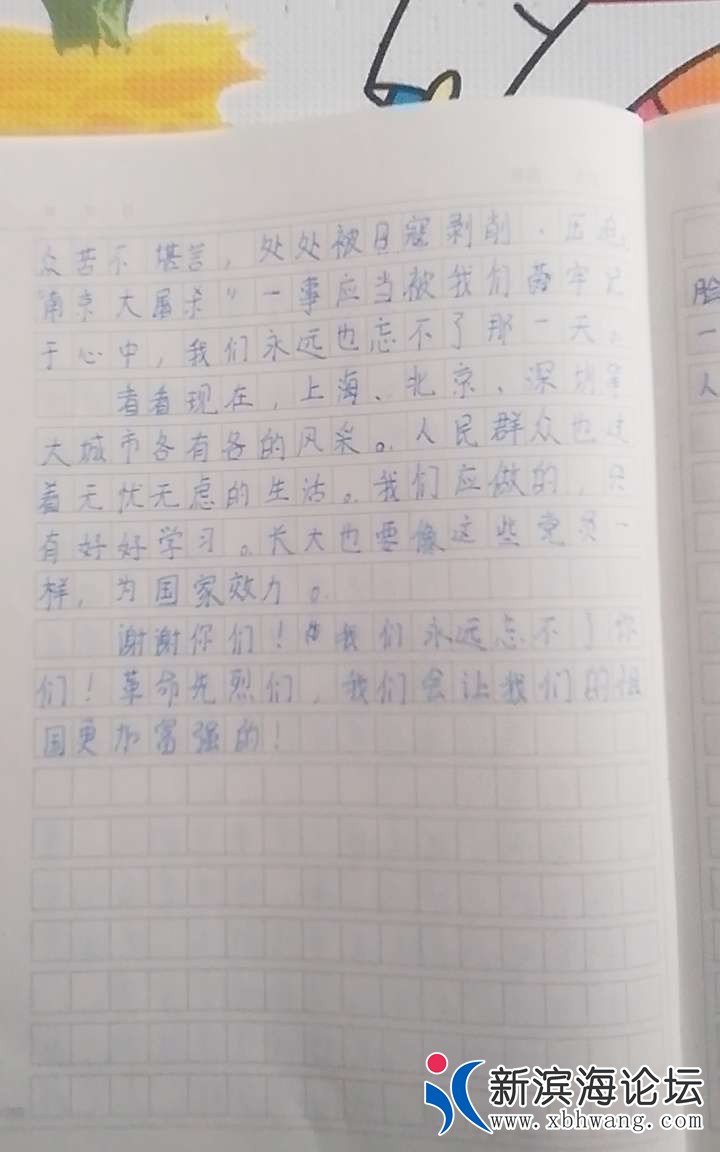 众苦不堪言，处处被日寇剥削、压迫
“南京大屠杀”一事应当被我们牢记
于心中，我们永远也忘不了那一天。
看看现在，上海、北京、深圳等
大城市各有各的风采。人民群众也过
着无忧无虑的生活。我们应做的，只
有好好学习。长大也要像这些党员一
样，为国家效力。
谢谢你们！我们永远忘不了你
们！革命先烈们，我们会让我们的祖
国更加富强的！
脸
一
人
新滨海论坛
www.xbhwang.com